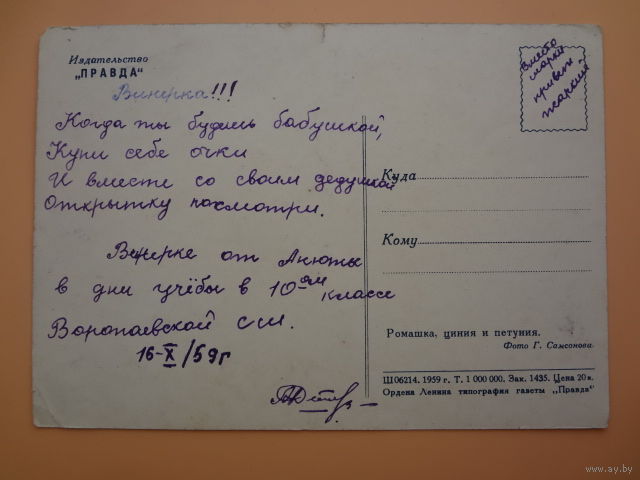 Издательство
„ПРАВДА“
Винерка!!!
Когда ты будешь бабушкой,
Купи себе очки
И вместе со своим дедушкой
Открытку посмотри.
Винерке от Анюты
в дни учёбы в 10-ом классе
Воропаевской сш.
16-X/59г
Вместо
марки
привет
жаркий
Куда
Кому
Ромашка, циния и петуния.
Фото Г. Самсонова.
Ш 06214. 1959 г. Т. 1 000 000. Зак. 1435. Цена 20 к.
Ордена Ленина типография газеты „Правда“
www.ay.by